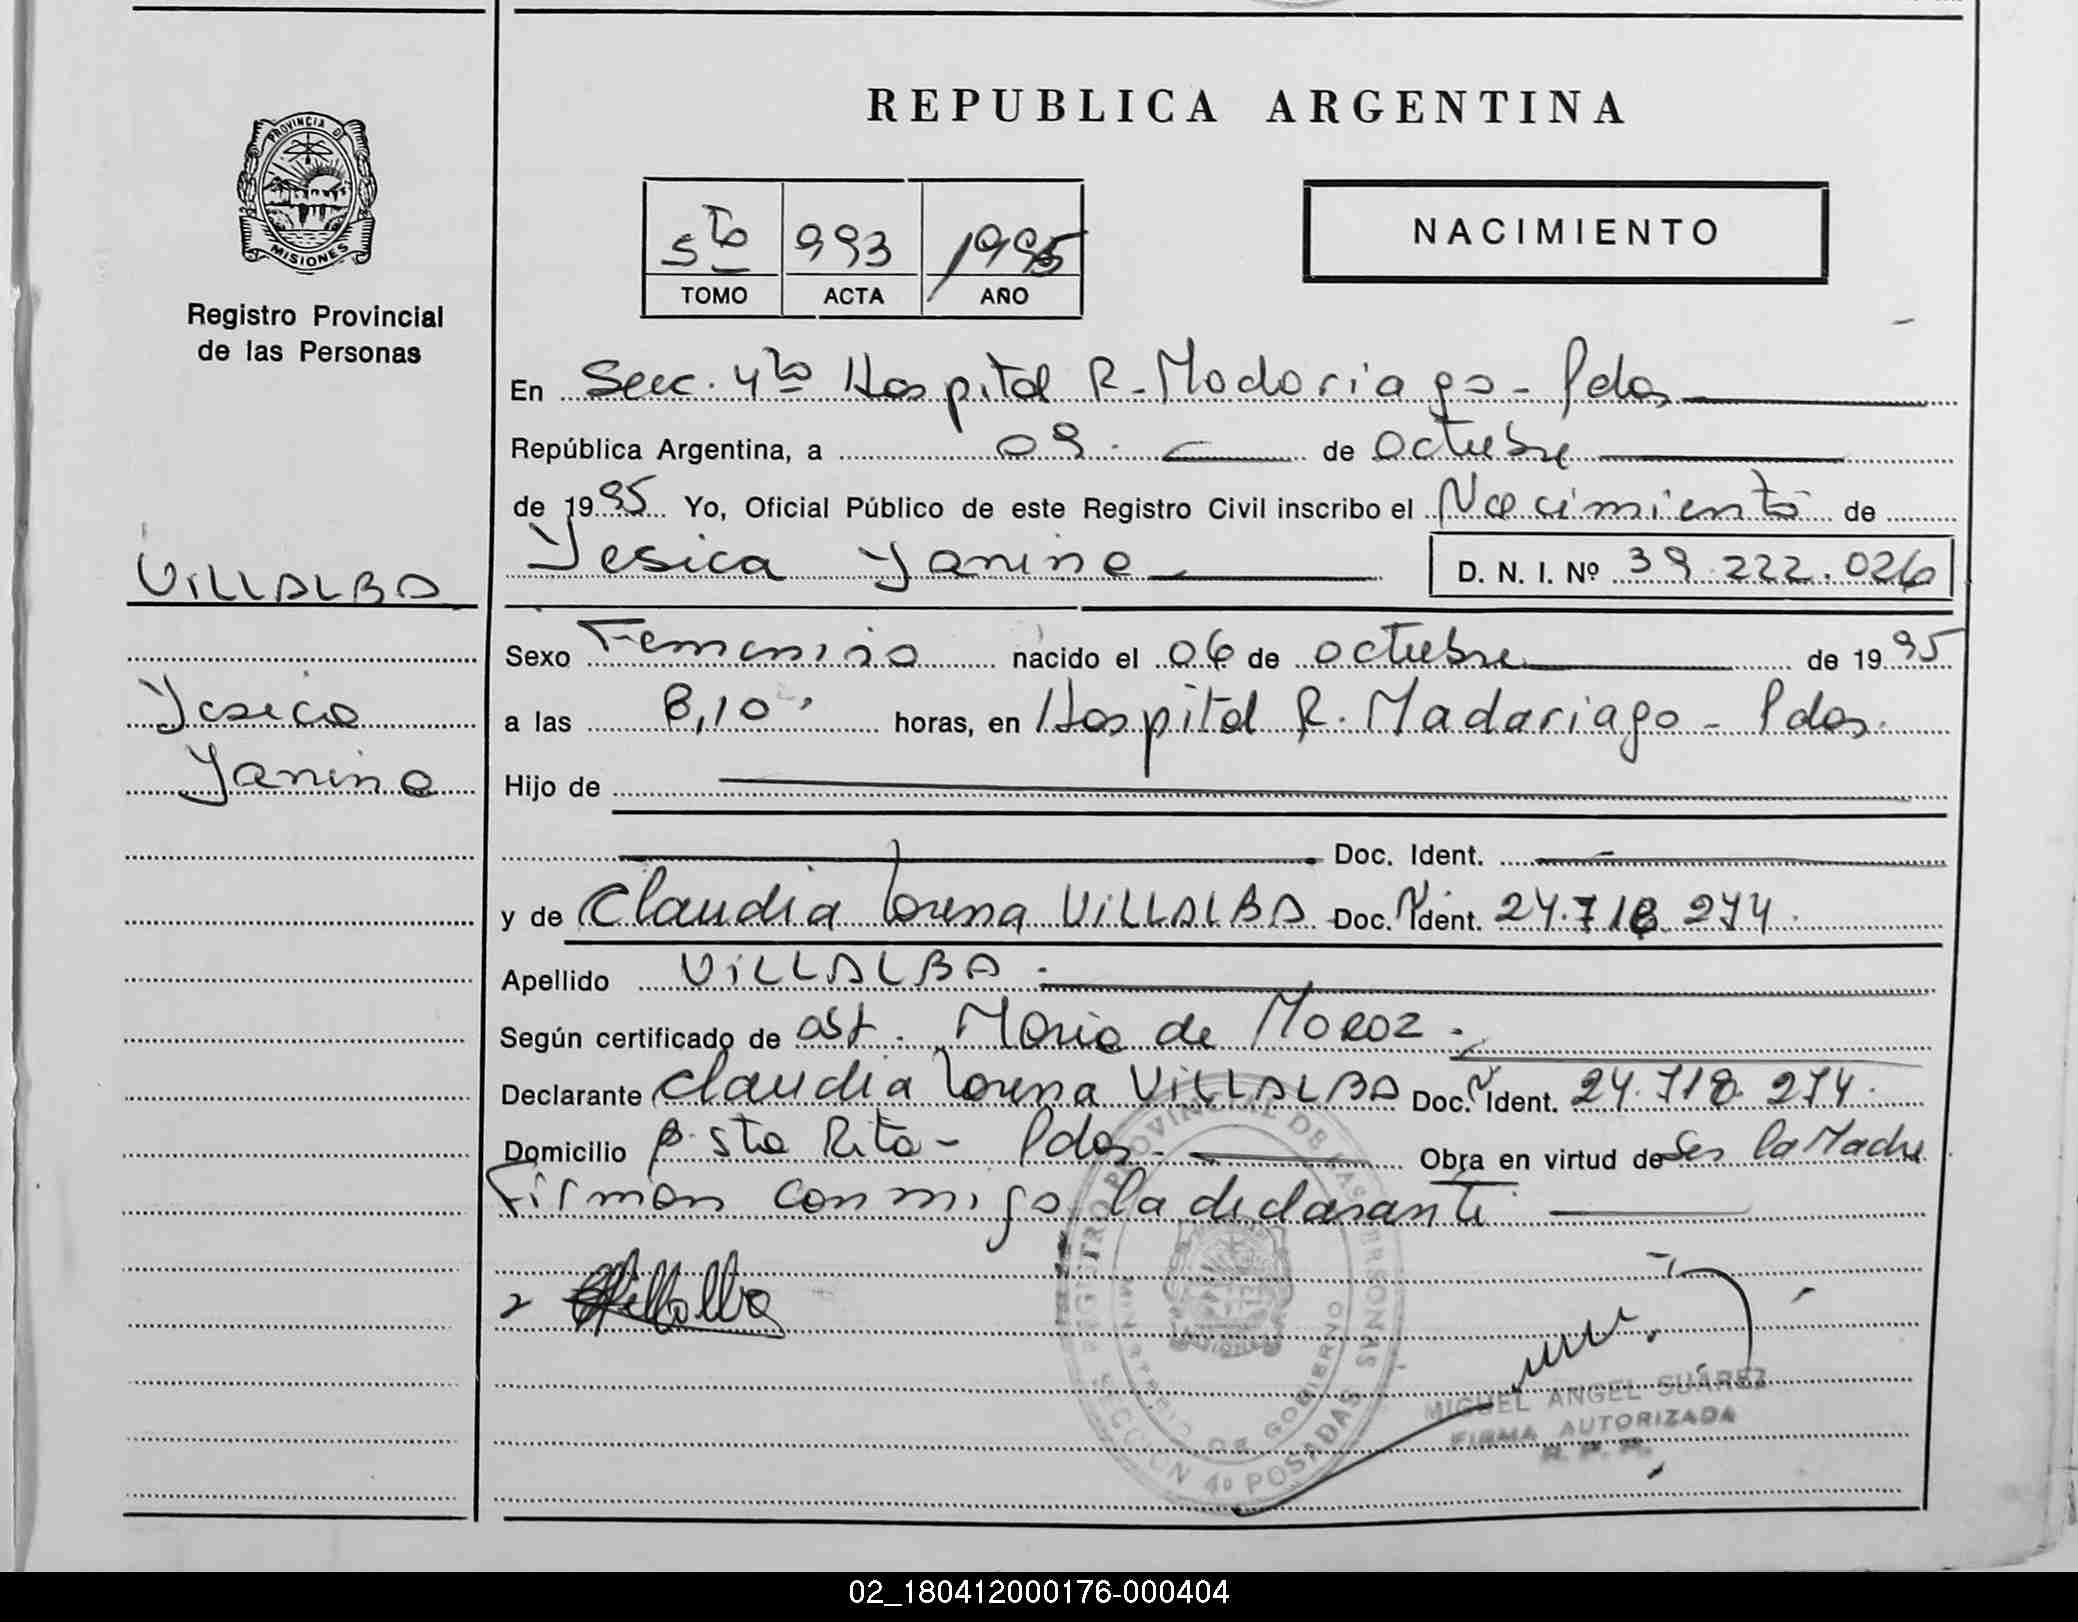 REPUBLICA ARGENTINA
PROVINCIA D MISIONES
Registro Provincial
de las Personas
5to 993 1995
TOMO ACTA AÑO
NACIMIENTO
En Secc. 4ta Hospital R. Madariaga - Pdas
República Argentina, a 09 de octubre
de 1995 Yo, Oficial Público de este Registro Civil inscribo el Nacimiento de
VILLALBA
Yesica Yanina D. N. I. Nº 39.222.026
Sexo Femenino nacido el 06 de octubre de 1995
Yesica
a las 8,10 horas, en Hospital R. Madariaga - Pdas.
Yanina
Hijo de
Doc. Ident.
y de Claudia Lorena VILLALBA Doc. Ident. 24.718.274.
Apellido VILLALBA.
Según certificado de obst. Maria de Moroz.
Declarante Claudia Lorena VILLALBA Doc. Ident. 24.718.274.
Domicilio B. Sta Rita - Pdas. Obra en virtud de Ser la Madre
Firman conmigo la declarante
REGISTRO PROVINCIAL DE LAS PERSONAS
MINISTERIO DE GOBIERNO
SECCION 4º POSADAS
MIGUEL ANGEL SUÁREZ
FIRMA AUTORIZADA
R. P. P.
02_180412000176-000404